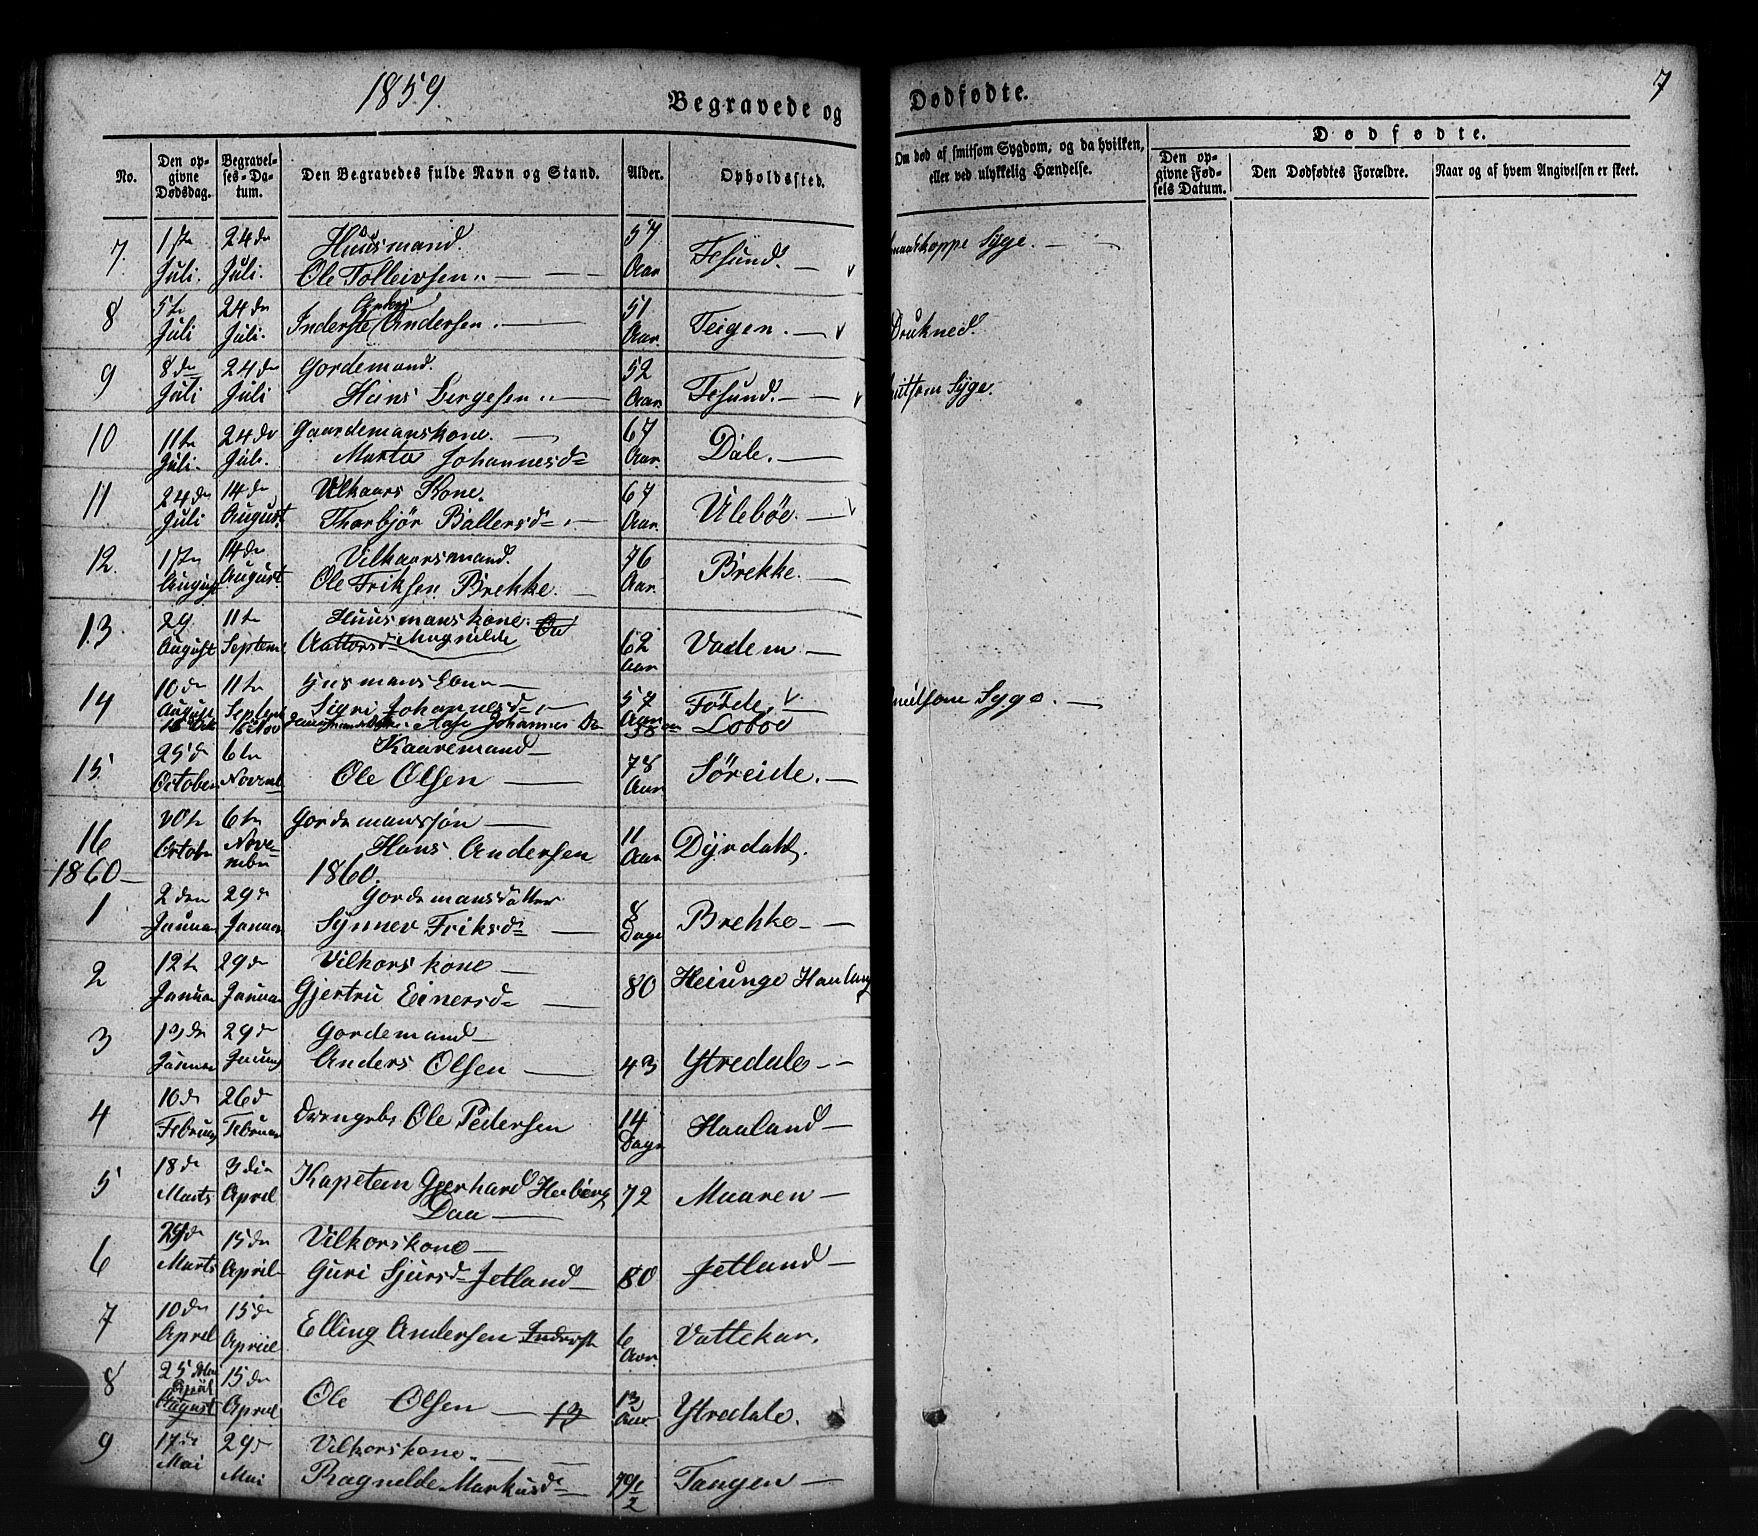 1859.
Begravede og
Dødfødte.
7
No.
Den opgivne Dødsdag.
Begravelses-Datum.
Den Begravedes fulde Navn og Stand.
Alder.
Opholdssted.
Om død af smitsom Sygdom, og da hvilken, eller ved ulykkelig Hændelse.
Dødfødte.
Den opgivne Fødsels Datum.
Den Dødfødtes Forældre.
Naar og af hvem Angivelsen er skeet.
7. 1ste Juli. 24de Juli. Huusmand. Ole Tolleivsen. 57 Aar Tesund. koppe Syge.
8 5te Juli 24de Juli. Inderste Anders Andersen. 51 Aar. Teigen. Drukned.
9 8de Juli 24de Juli Gordemand. Hans Børgesen. 52 Aar. Tesund. Syge.
10 11te Juli. 24de Juli. Gaardemanskone. Marta Johannesd 67 Aar. Dale.
11 24de Juli 14de August. Vilkaars Kone. Thorbjør Ballersd 67 Aar. Ulebøe.
12. 1ste August 14de August. Vilkaarsmand. Ole Eriksen Brekke. 76 Aar. Brekke.
13 29 August 11te Septemb Huusmanskone. Magnilde 62 Aar Vadem
14 10de August 11te Septemb Husmanskone Sigri Johannesd 57 Aar Førde, smitsom Syge.
18 Nov Aase Johannes Da 38 Lobøe
15 25d October 6te Novemb Kaaremand Ole Olsen 78 Aar Søreide.
16 20te October 6te November Gordemanssøn Hans Andersen 11 Aar Dyrdahl.
1860 1860.
1 2den Januar 29d Januar Gordemansdatter Synnev Eriksd 8 Dage Brekke
2 12te Januar 29de Januar Vilkorskone Gjertru Einersd 80 Heiunge
3 13de Januar 29de Januar Gordemand Anders Olsen 43 Ytredale
4 10de Februar 26d Februar Drengebs Ole Pedersen 14 Dage Haaland
5 18de Marts 3die April Kapetein Gjerhard Daa 72 Maaren
6 Marts 15de April Vilkorskone Guri Sjursd Jetland 80 Jetland
7 10de Aprel 15de Apriil Elling Andersen Inderst 6 Aar Vattekar.
8 25 April August 15de Apriil Ole Olsen 13 13 Aar Ytredale.
9 17de Mai 29d Mai Vilkorskone. Ragnilde Markusd 79 1/2 Tangen